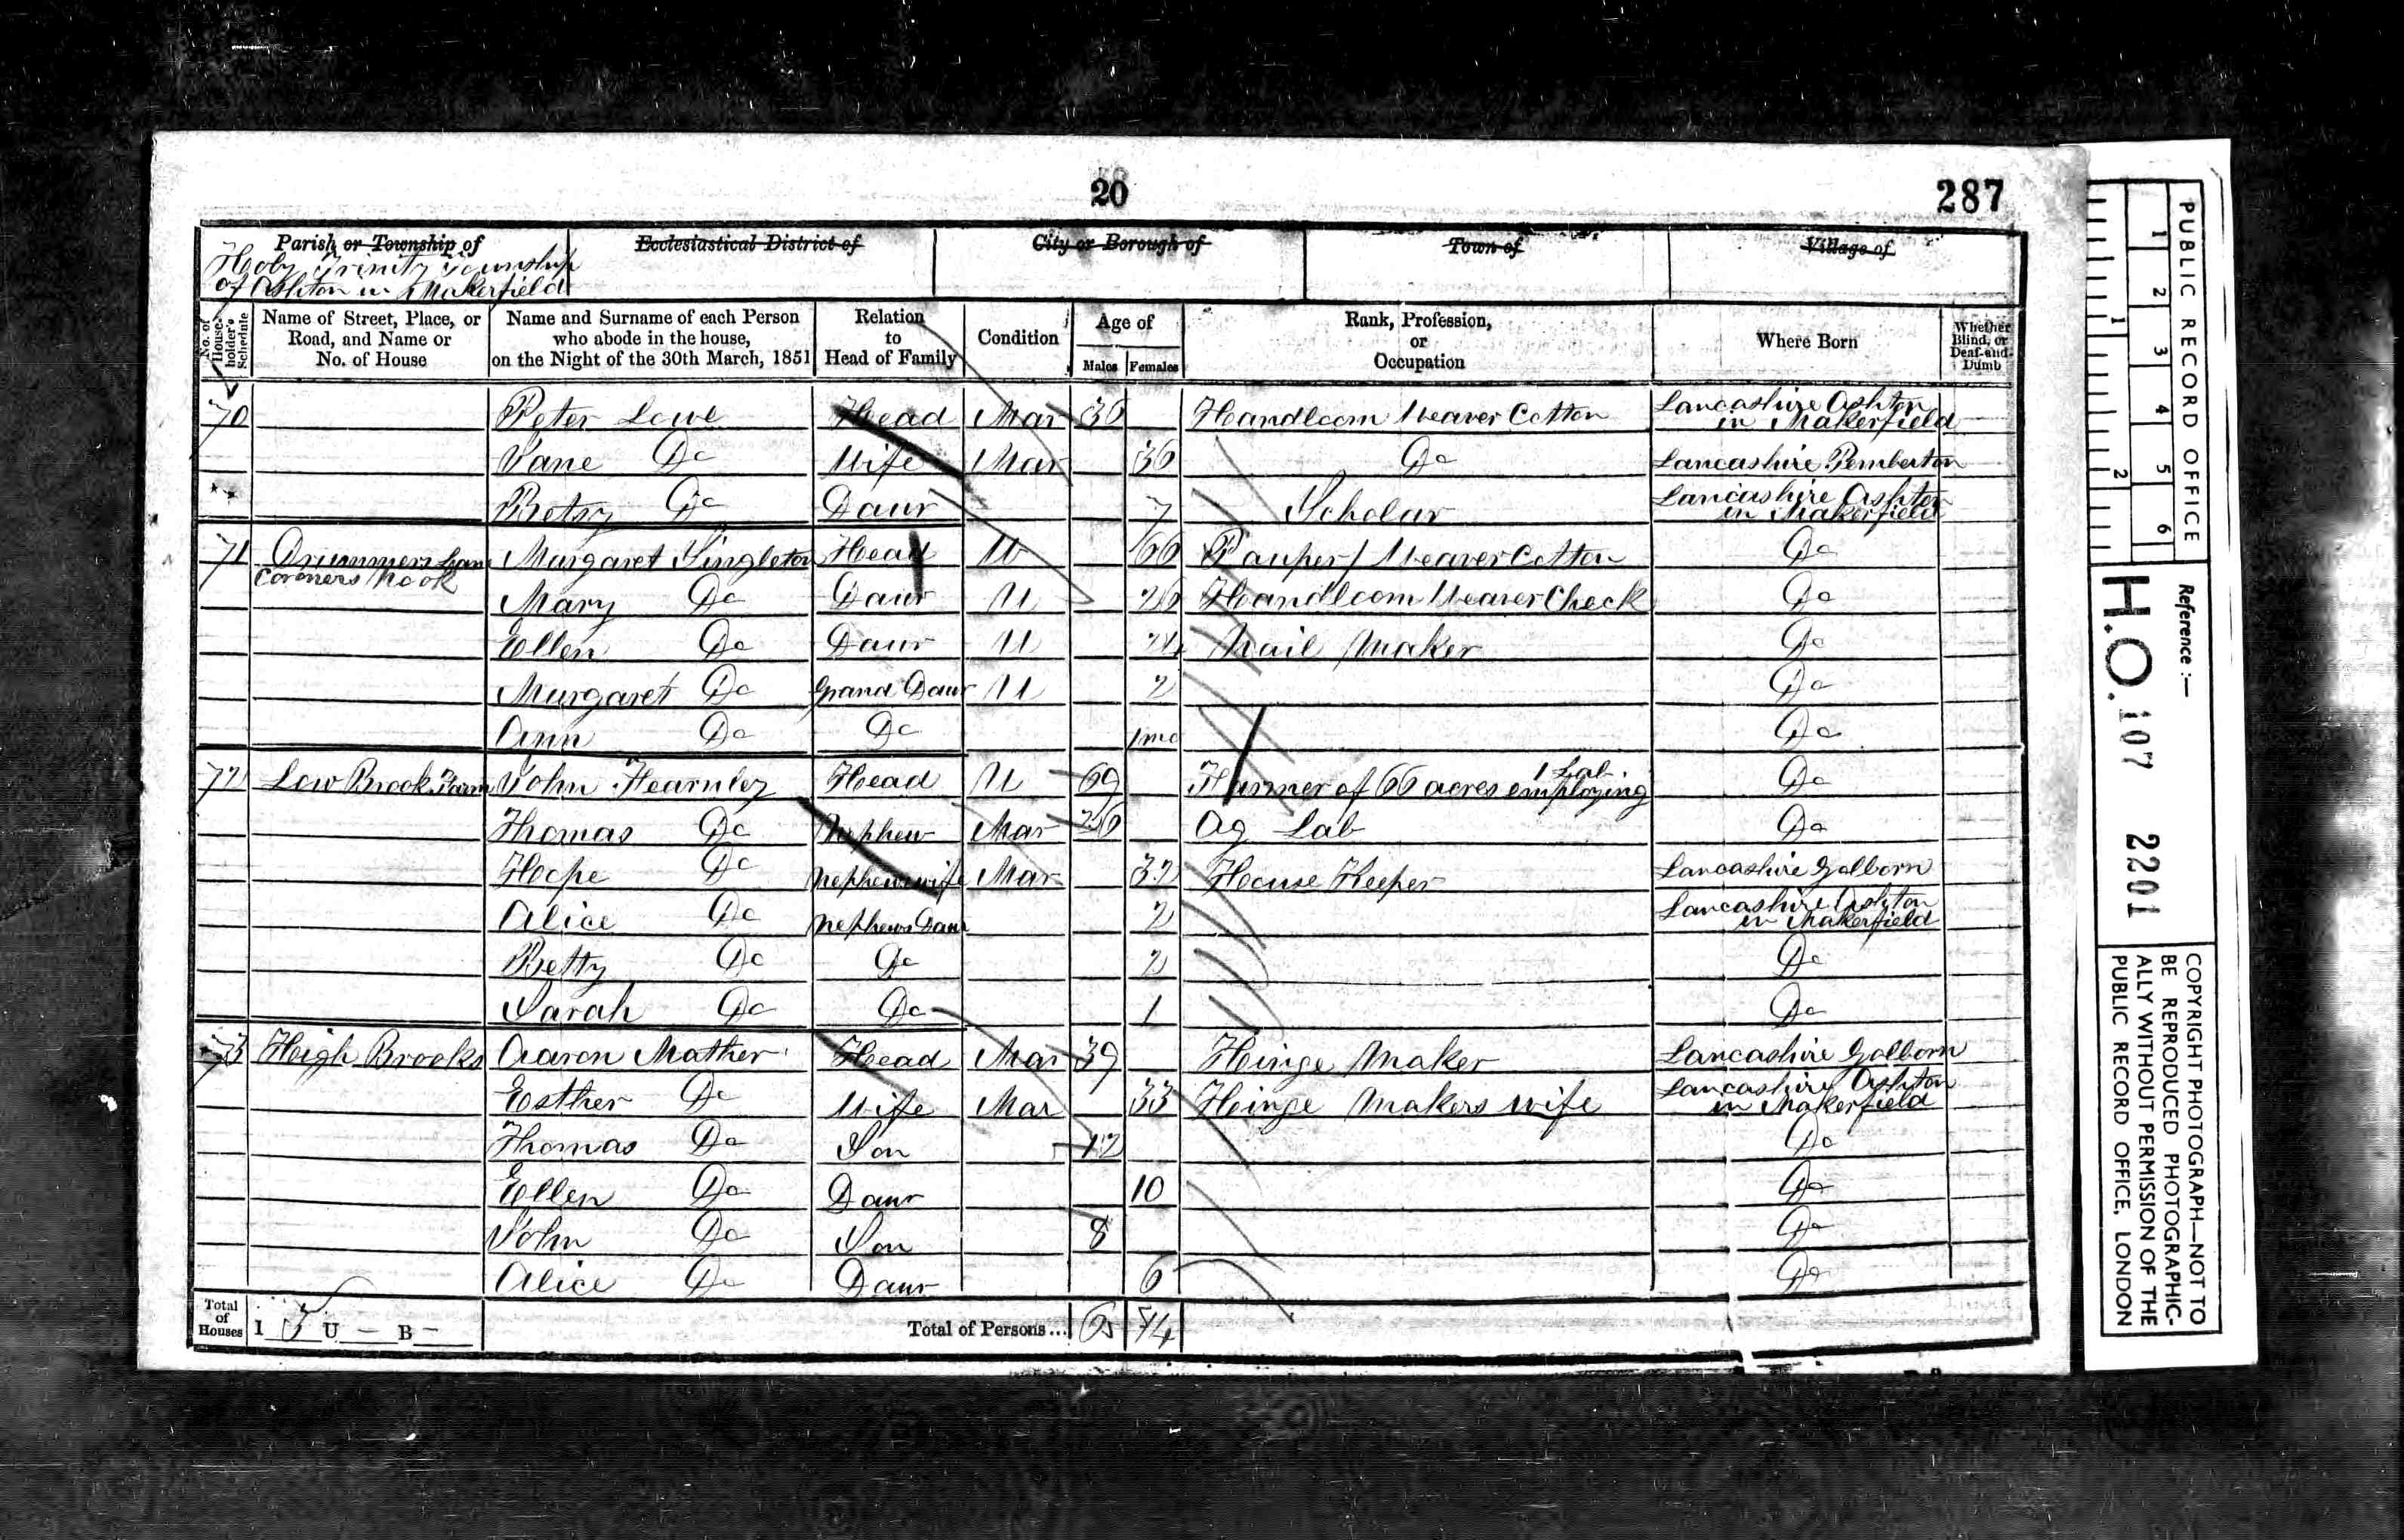 20
287
Parish or Township of
Ecclesiastical District of
City or Borough of
Town of
Village of
Holy Trinity Township
of Ashton in Makerfield
No. of House-holder's Schedule
Name of Street, Place, or Road, and Name or No. of House
Name and Surname of each Person who abode in the house, on the Night of the 30th March, 1851
Relation to Head of Family
Condition
Age of
Males
Females
Rank, Profession, or Occupation
Where Born
Whether Blind, or Deaf-and-Dumb
70 Peter Lowe Head Mar 36 Handloom Weaver Cotton Lancashire Ashton in Makerfield
Jane Do Wife Mar 36 Do Lancashire Pemberton
Betsy Do Daur 7 Scholar Lancashire Ashton in Makerfield
71 Drummers Lane Corners Nook Margaret Singleton Head W 66 Pauper / Weaver Cotton Do
Mary Do Daur U 26 Handloom Weaver Check Do
Ellen Do Daur U 24 Nail Maker Do
Margaret Do Grand Daur U 2 Do
Ann Do Do 1mo Do
72 Low Brook Farm John Fearnley Head U 69 Farmer of 66 acres employing 1 Lab. Do
Thomas Do Nephew Mar 26 Ag Lab Do
Hope Do Nephews wife Mar 32 House Keeper Lancashire Golborn
Alice Do Nephews Daur 2 Lancashire Ashton in Makerfield
Betty Do Do 2 Do
Sarah Do Do 1 Do
73 High Brooks Aaron Mather Head Mar 39 Hinge Maker Lancashire Golborn
Esther Do Wife Mar 33 Hinge Makers wife Lancashire Ashton in Makerfield
Thomas Do Son 12 Do
Ellen Do Daur 10 Do
John Do Son 8 Do
Alice Do Daur 6 Do
Total of Houses I U – B –
Total of Persons... 6 14
PUBLIC RECORD OFFICE
1 2 3 4 5 6
1 2
Reference :—
H.O. 107 2201
COPYRIGHT PHOTOGRAPH—NOT TO
BE REPRODUCED PHOTOGRAPHIC-
ALLY WITHOUT PERMISSION OF THE
PUBLIC RECORD OFFICE, LONDON